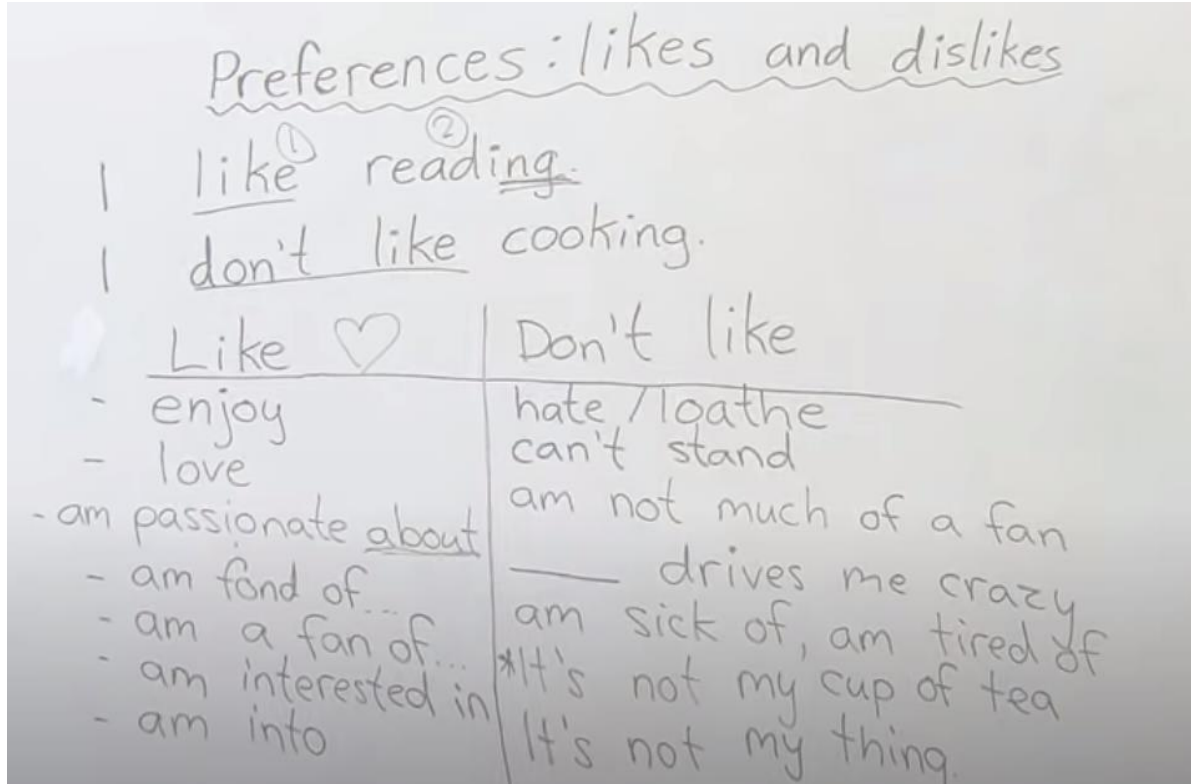 Preferences: likes and dislikes
① ②
I like reading.
I don't like cooking.
Like ♡ Don't like
- enjoy hate / loathe
- love can't stand
- am passionate about am not much of a fan
- am fond of... ___ drives me crazy
- am a fan of... am sick of, am tired of
- am interested in *It's not my cup of tea
- am into It's not my thing.